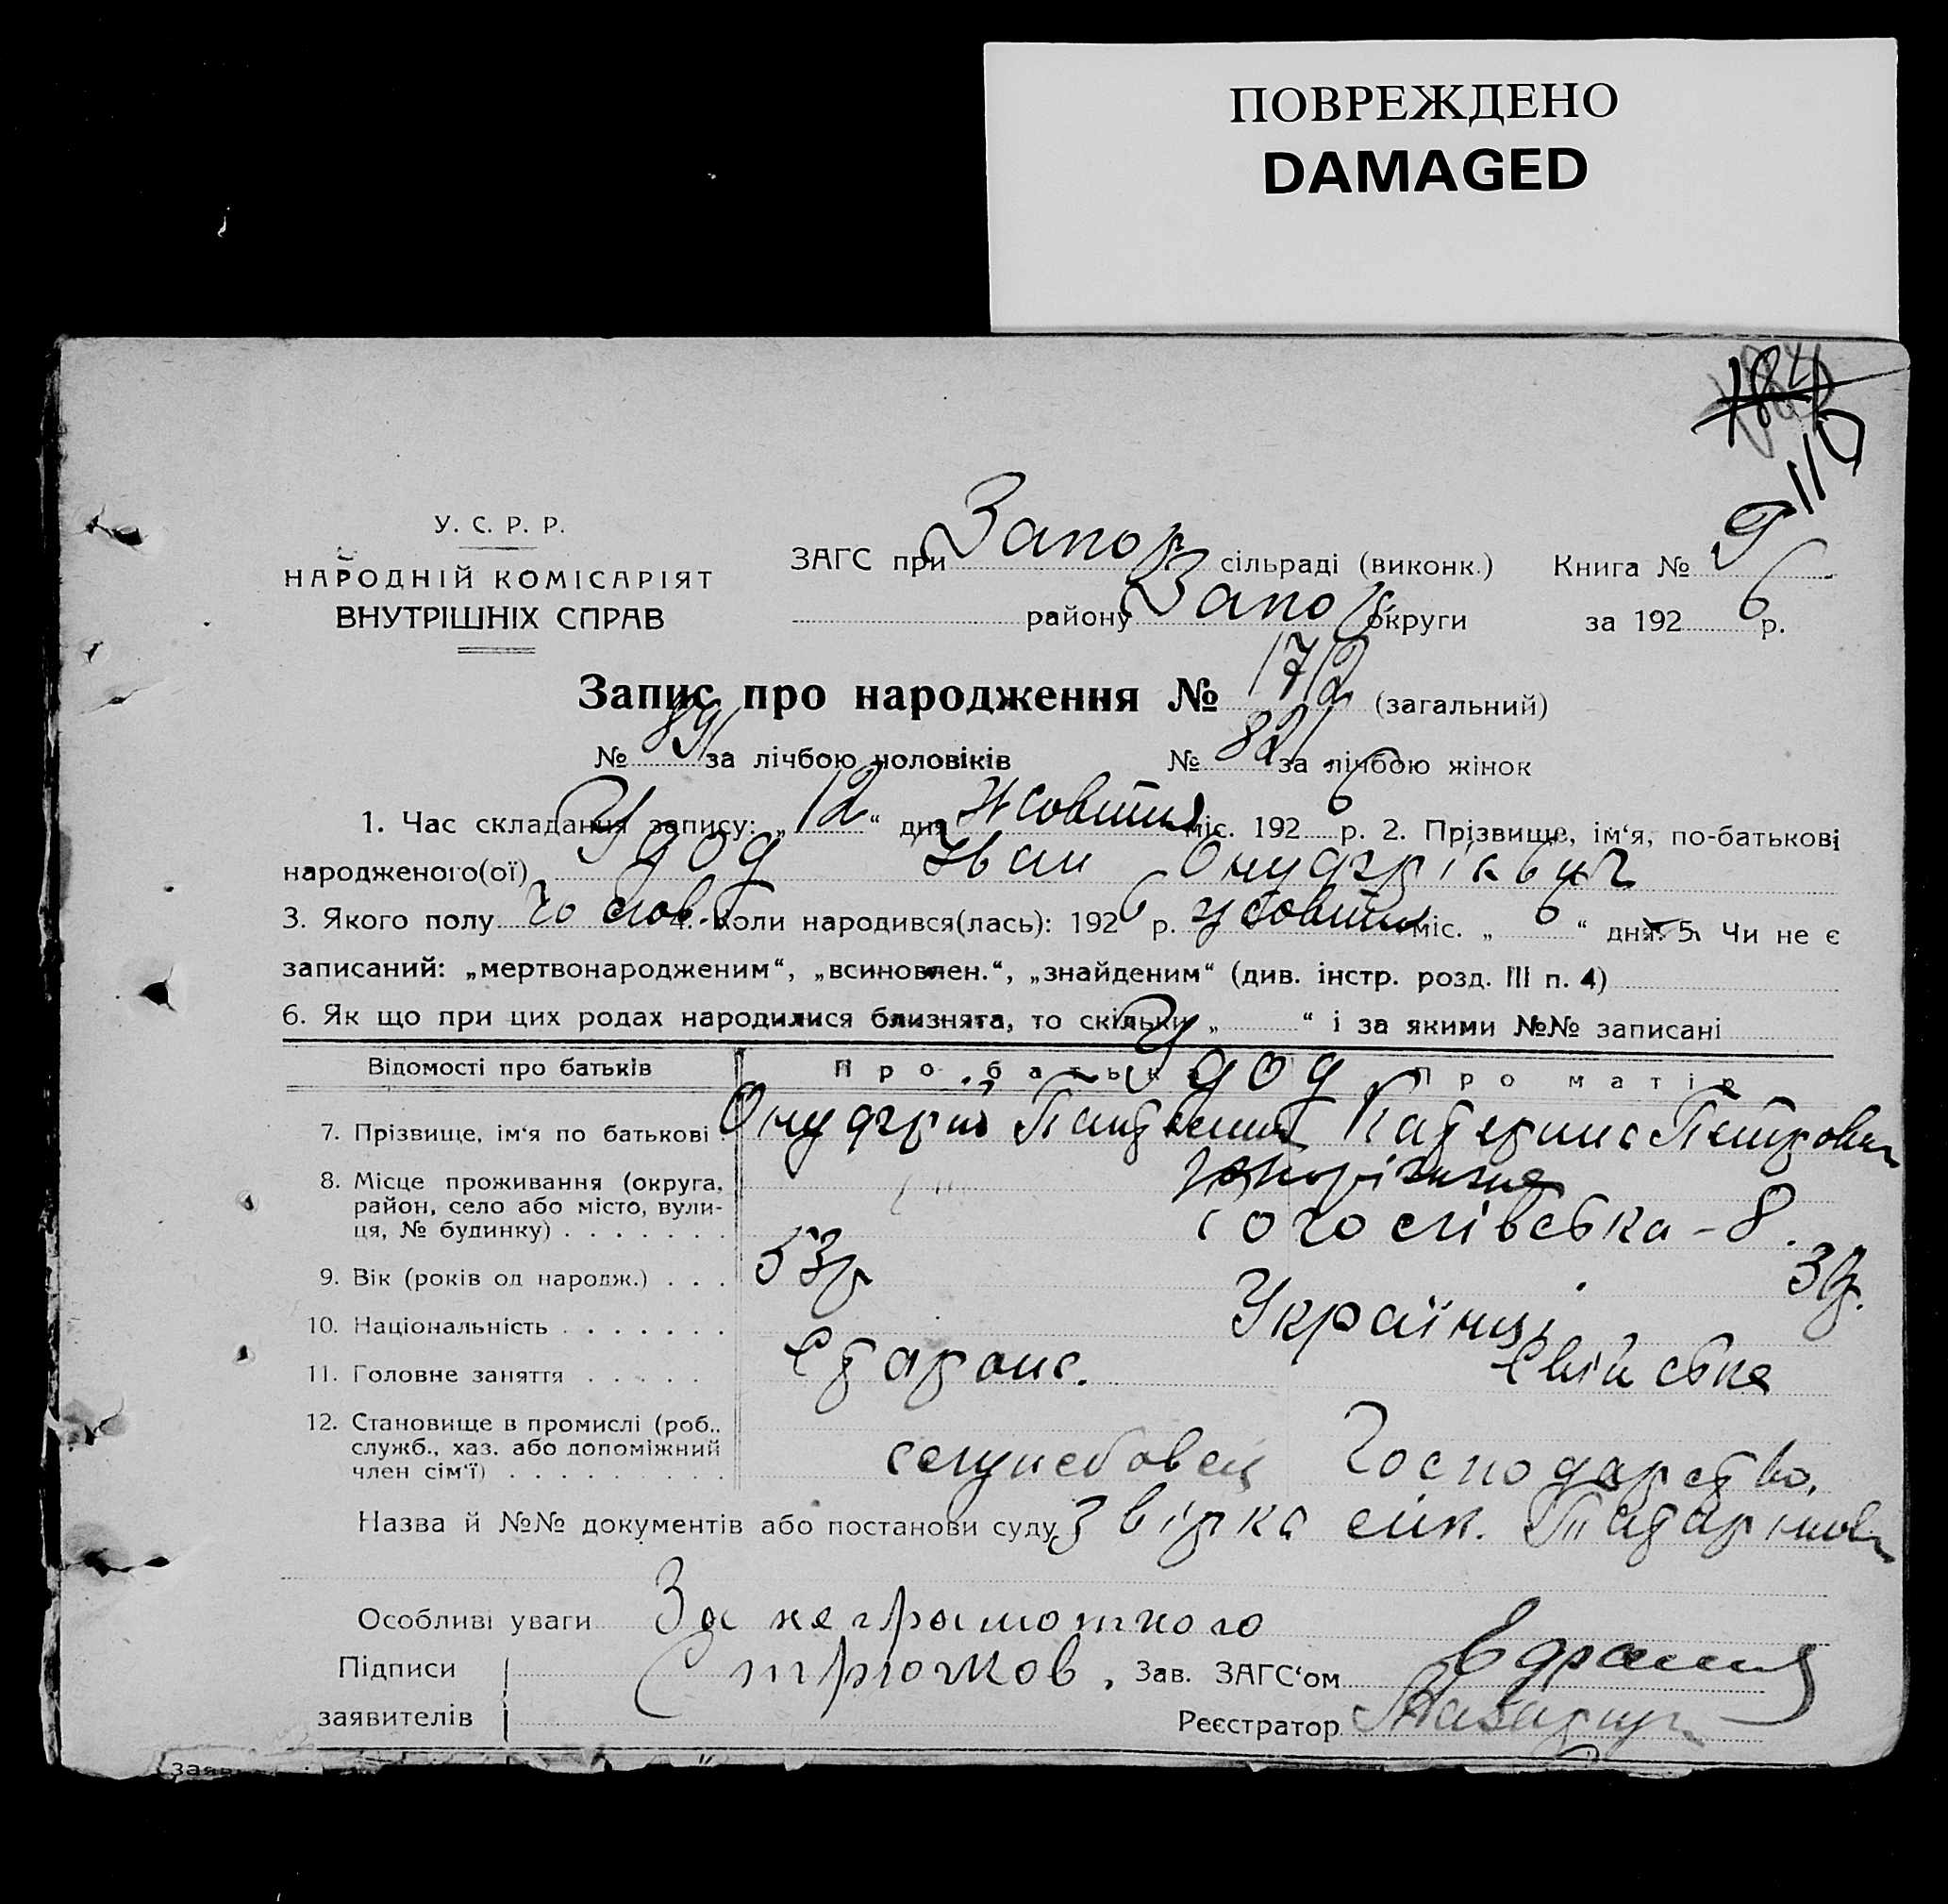 ПОВРЕЖДЕНО
DAMAGED
110
У. С. Р. Р.
НАРОДНІЙ КОМІСАРІЯТ
ВНУТРІШНІХ СПРАВ
ЗАГС при Запор сільраді (виконк.) Книга № 9
району Запор округи за 1926 р.
Запис про народження № 1712 (загальний)
№ 891 за лічбою чоловіків № 821 за лічбою жінок
1. Час складання запису: „12“ дня Жовтня міс. 1926 р. 2. Прізвище, ім‘я, по-батькові
народженого(ої) Удод Іван Онуфрієвич
3. Якого полу чолов. 4. Коли народився(лась): 1926 р. Жовтня міс. „6“ дня. 5. Чи не є
записаний: „мертвонародженим“, „всиновлен.“, „знайденим“ (див. інстр. розд. III п. 4)
6. Як що при цих родах народилися близнята, то скільки „ “ і за якими №№ записані
Відомості про батьків Про батька Про матір
Удод
7. Прізвище, ім‘я по батькові Онуфрій Катерина Петровна
8. Місце проживання (округа,
район, село або місто, вули-
ця, № будинку) - 8.
9. Вік (років од народж.) 53р
10. Національність Українці
11. Головне заняття Сторож. Свійське
12. Становище в промислі (роб.,
служб., хаз. або допоміжний
член сім‘ї) служебовец Господарство.
Назва й №№ документів або постанови суду Звірка
Особливі уваги За неграмотного
Підписи
заявителів
Стрючков. Зав. ЗАГС‘ом
Реєстратор
заяв